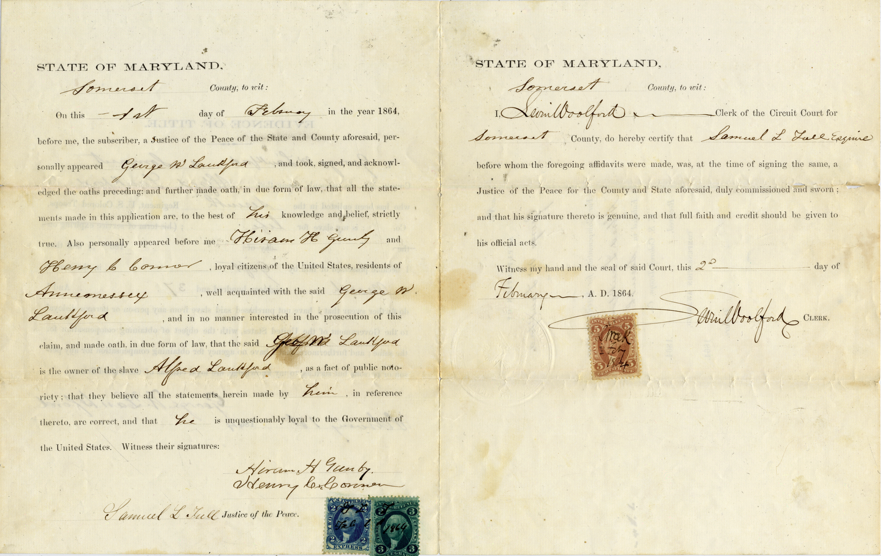 STATE OF MARYLAND,
Somerset County, to wit:
On this 1st day of February in the year 1864,
before me, the subscriber, a Justice of the Peace of the State and County aforesaid, per-
sonally appeared George W Lankford , and took, signed, and acknowl-
edged the oaths preceding; and further made oath, in due form of law, that all the state-
ments made in this application are, to the best of his knowledge and belief, strictly
true. Also personally appeared before me Hiram H Gunby and
Henry C Connor , loyal citizens of the United States, residents of
Annemessex , well acquainted with the said George W.
Lankford , and in no manner interested in the prosecution of this
claim, and made oath, in due form of law, that the said Lankford
is the owner of the slave Alfred Lankford , as a fact of public noto-
riety; that they believe all the statements herein made by him , in reference
thereto, are correct, and that he is unquestionably loyal to the Government of
the United States. Witness their signatures:
Hiram H Gunby.
Henry C. Connor
Samuel L Tull Justice of the Peace.
STATE OF MARYLAND,
Somerset County, to wit:
I, Levin Woolford Clerk of the Circuit Court for
Somerset County, do hereby certify that Samuel L Tull Esquire
before whom the foregoing affidavits were made, was, at the time of signing the same, a
Justice of the Peace for the County and State aforesaid, duly commissioned and sworn;
and that his signature thereto is genuine, and that full faith and credit should be given to
his official acts.
Witness my hand and the seal of said Court, this 2d day of
February , A. D. 1864.
Levin Woolford CLERK.